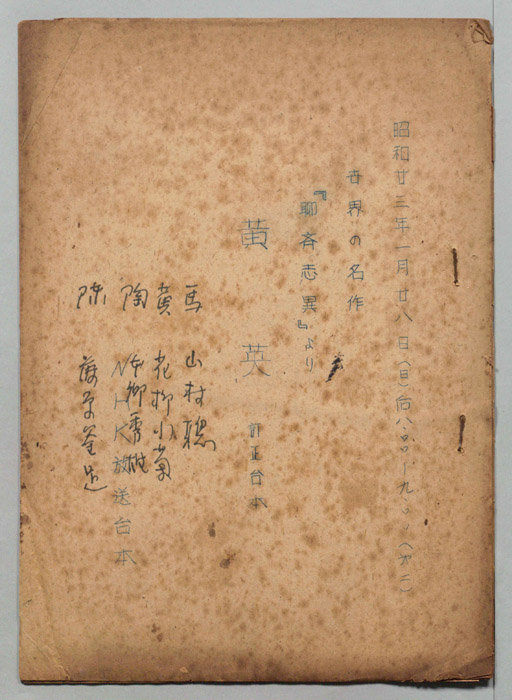 昭和廿三年一月廿八日(日)后八.〇〇―九.〇〇(オ二)
世界の名作
『聊斉志異』より
黄英
訂正台本
馬 山村聡
黄 花柳小菊
陶
NHK放送台本
陳